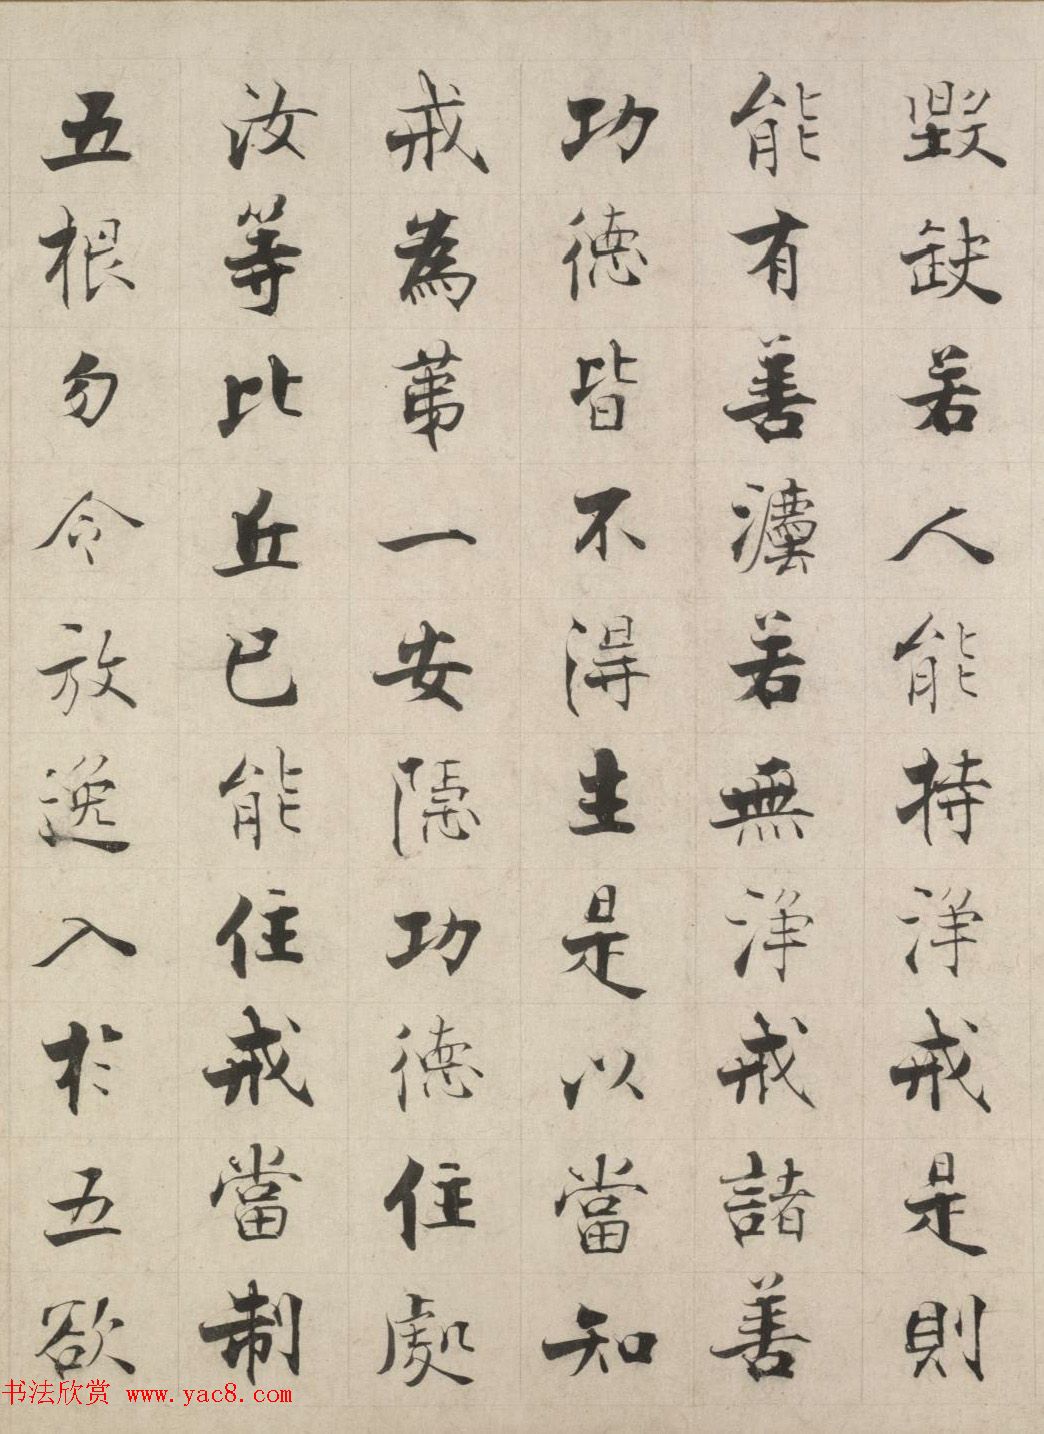 毀缺若人能持淨戒是則
能有善法若無淨戒諸善
功德皆不得生是以當知
戒為第一安隱功德住處
汝等比丘已能住戒當制
五根勿令放逸入於五欲
书法欣赏 www.yac8.com